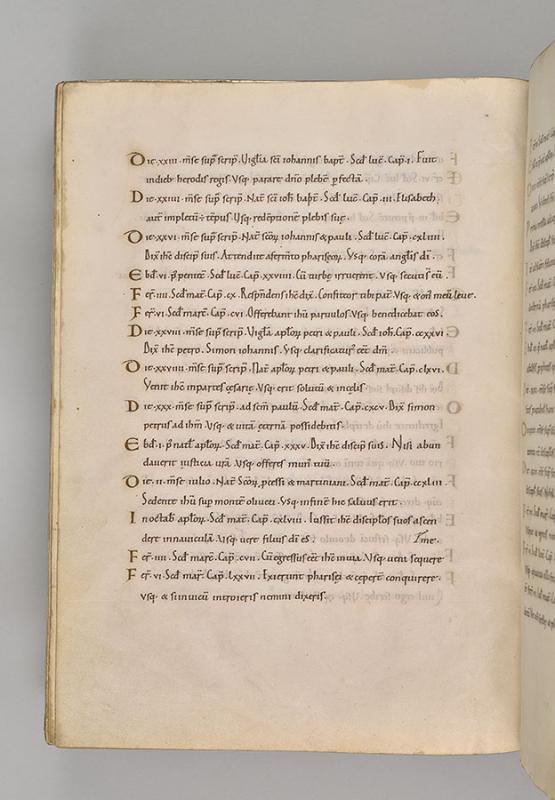 Die · xxiii · m̅se sup̅ scrip̅ . Uigl̅ia sc̅i iohannis bapt̅ . Scd̅ luc̅ . Cap̅ . i . Fuit
indieb; herodis regis . Usq; parare dn̅o plebe̅ p̱fecta̅ .
Die · xxiiii · m̅se sup̅ scrip̅ . Nat̅ sc̅i ioh̅ bapt̅ . Scd̅ luc̅ . Cap̅ . iii . Elisabeth
aut̅ impletu̅ ÷ te̅pus . Usq; rede̅ptione̅ plebis suę .
Die · xxvi · m̅se sup̅ scrip̅ . Nat̅ sc̅oꝝ iohannis & pauli . Scd̅ luc̅ . Cap̅ . cxliiii .
Dix̅ ihc̅ discip̅ suis . Attendite aferm̅to phariseoꝝ . Usq; cora̅ anglis d̅i .
Ebd̅ . vi . p̅ pentec̅ . Scd̅ luc̅ . Cap̅ . xxviiii . Cu̅ turbę irruerent . Usq; secuti s̅ eu̅ .
Fer̅ . iiii . Scd̅ mat̅ . Cap̅ . cx . Respn̅dens ihc̅ dix̅ . Confiteor tibi pat̅ . Usq; & on̅ meu̅ leue .
Fer̅ . vi . Scd̅ marc̅ . Cap̅ . cvi . Offerebant ihu̅ paruulos . Usq; benedicebat eos .
Die · xxviii · m̅se sup̅ scrip̅ . Uigl̅a apl̅oꝝ petri & pauli . Scd̅ ioh̅ . Cap̅ . ccxxvi
Dix̅ ihc̅ petro . Simon iohannis . Usq; clarificatur̅ e̅e̅t dn̅ .
Die · xxviiii · m̅se sup̅ scrip̅ . Nat̅ apl̅oꝝ petri & pauli . Scd̅ mat̅ . Cap̅ . clxvi .
Uenit ihc̅ inpartes cęsarię . Usq; erit solutu̅ & incęlis .
Die · xxx · m̅se sup̅ scrip̅ . ad sc̅m paulu̅ . Scd̅ mat̅ . Cap̅ . cxcv . Dix̅ simon
petrus ad ihm̅ . Usq; & uita̅ ęterna̅ possidebitis .
Ebd̅ . i . p̅ natl̅ apl̅oꝝ . Scd̅ mat̅ . Cap̅ . xxxv . Dix̅ ihc̅ discip̅ suis . Nisi abun
dauerit iusticia ura̅ . Usq; offeres mun̅ tuu̅ .
Die · ii · m̅se iulio . Nat̅ Sc̅oꝝ p̱cessi & martiniani . Scd̅ mat̅ . Cap̅ . ccxliii
Sedente ihu̅ sup monte̅ oliueti . Usq; infine̅ hic saluus erit .
In octab̅ apl̅oꝝ . Scd̅ mat̅ . Cap̅ . cxlviii . Iussit ihc̅ discip̅los suos ascen
dere innauicula̅ . Usq; uere filius di̅ es .
Fer̅ . iiii . Scd̅ marc̅ . Cap̅ . cvii . Cu̅ egressus e̅e̅t ihc̅ inuia . Usq; ueni sequere
Fer̅ . vi . Scd̅ mar̅ . Cap̅ . lxxvii . Exierunt pharisei & cepert̅ conquirere .
usq; & si inuicu̅ introieris nemini dixeris .